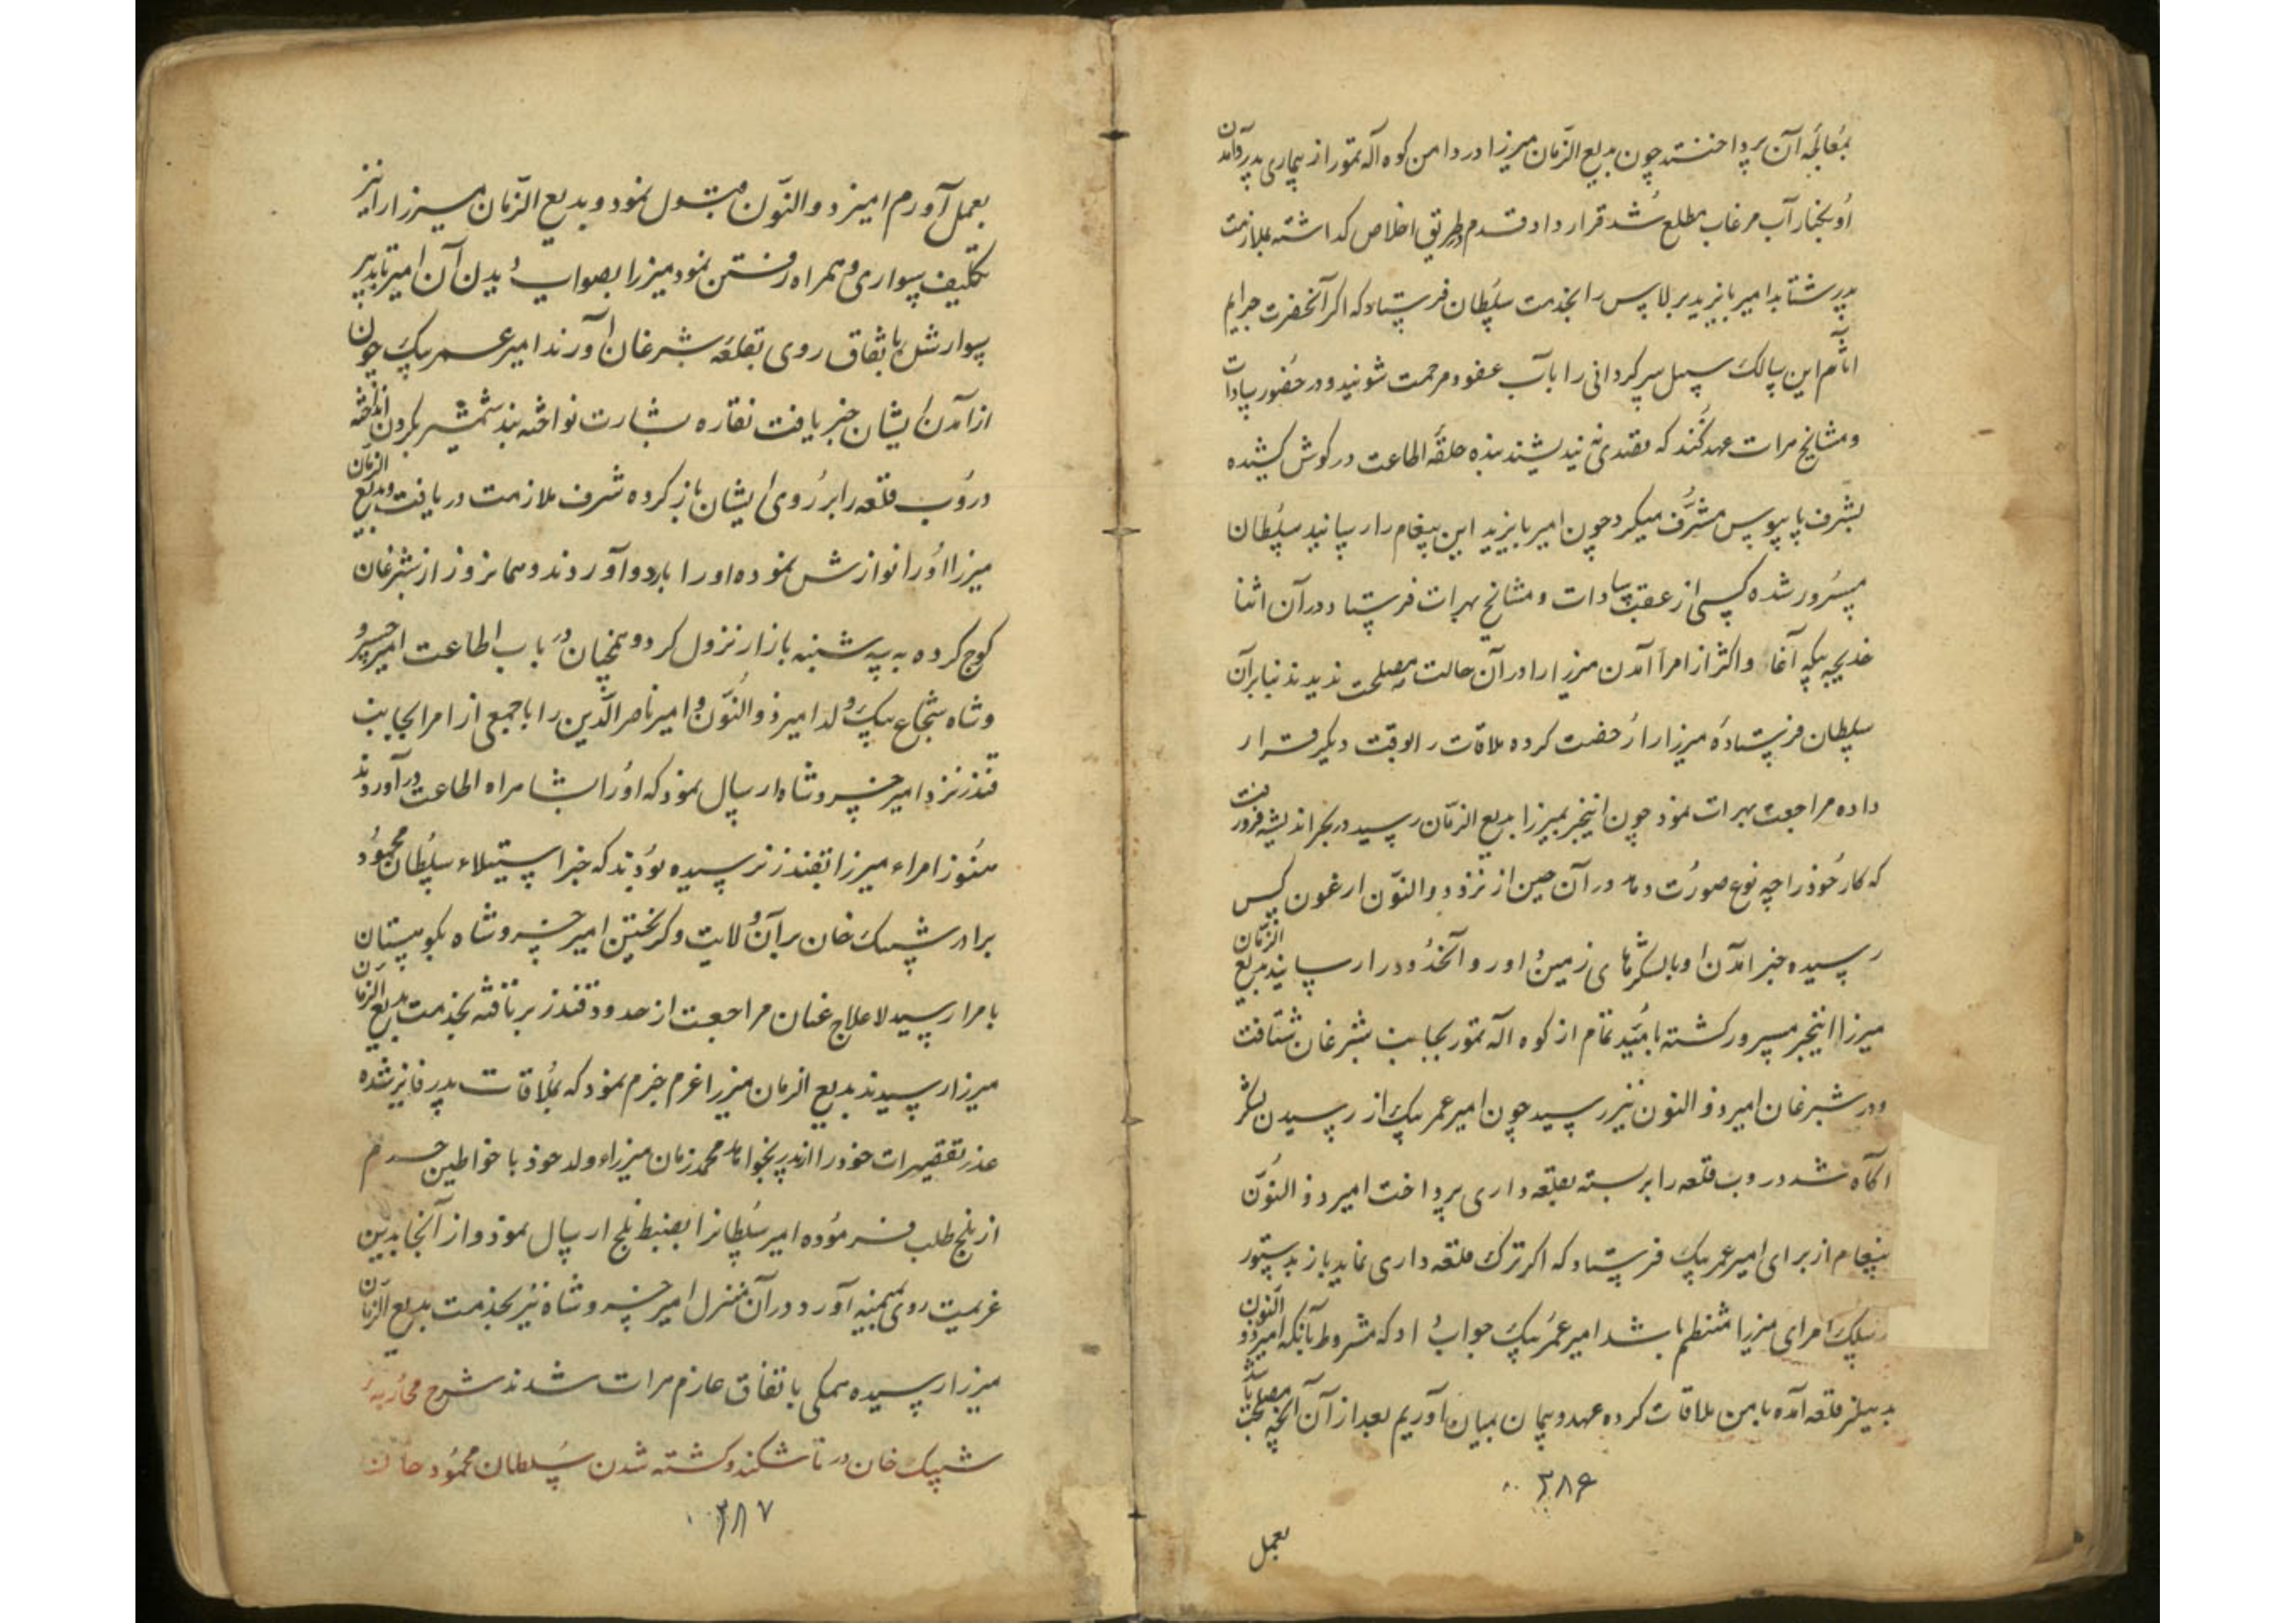 بمعالجهٔ آن پرداختند چون بدیع الزمان میرزا در دامن کوه اله تمور از بیماری پدر و آمدن
او بکنار آب مرغاب مطلع شد قرار داد قدم در طریق اخلاص کذاشته بملازمت
پدر شتابد امیر بایزید برلاس را بخدمت سلطان فرستاد که اکر آنحضرت جرایم
اثام این سالک سبیل سرکردانی را بآب عفو و مرحمت شوئید و در حضور سادات
و مشایخ هرات عهد کنند که بقصدی نیندیشند بنده حلقهٔ اطاعت در کوش کشیده
بشرف پایبوس مشرف میکردد چون امیر بایزید این پیغام را رسانید سلطان
مسرور شده کسی از عقب سادات و مشایخ بهرات فرستاد در آن اثنا
خدیجه بیکه آغا و اکثر از امرا آمدن میرزا را در آن حالت مصلحت ندیدند بنابر آن
سلطان فرستادهٔ میرزا را رخصت کرده ملاقات را بوقت دیکر قرار
داده مراجعت بهرات نمود چون اینخبر بمیرزا بدیع الزمان رسید در بحر اندیشه فرو رفت
که کار خود را چه نوع صورت دهد در آن حین از نزد ذوالنون ارغون کس
رسیده خبر آمدن او با لشکرهای زمین داور و آنحدود را رسانید بدیع الزمان
میرزا از اینخبر مسرور کشته بامید تمام از کوه اله تمور بجانب شبرغان شتافت
و در شبرغان امیر ذو النون نیز رسید چون امیر عمر بیک از رسیدن لشکر
آکاه شد دروب قلعه را بربسته بقلعه داری پرداخت امیر ذو النون
پیغام از برای امیر عمر بیک فرستاد که اکر ترک قلعه داری نماید باز بدستور
در سلک امرای میرزا منتظم باشد امیر عمر بیک جواب داد که مشروط بآنکه امیر ذو النون
بدهلیز قلعه آمده با من ملاقات کرده عهد و پیمان بمیان آوریم بعد از آن آنچه مصلحت باشد
۳۸۶
بعمل
بعمل آورم امیر ذو النون قبول نمود و بدیع الزمان میرزا را نیز
تکلیف سواری و همراه رفتن نمود میرزا بصواب دید آن امیر با تدبیر
سوار شد باتفاق روی بقلعه شبرغان آورند امیر عمر بیک چون
از آمدن ایشان خبر یافت نقاره بشارت نواخته بند شمشیر بکردن انداخته
دروب قلعه را بر روی ایشان باز کرده شرف ملازمت دریافت و بدیع الزمان
میرزا او را نوازش نموده او را باردو آوردند و همانروز از شبرغان
کوچ کرده به سه شنبه بازار نزول کرد و همچنان در باب اطاعت امیر خسرو
و شاه شجاع بیک ولد امیر ذو النون و امیر ناصر الدین را با جمعی از امرا بجانب
قندز نزد امیر خسرو شاه ارسال نمود که او را بشاهراه اطاعت در آوردند
هنوز امراء میرزا بقندز نرسیده بودند که خبر استیلاء سلطان محمود
برادر شیبک خان بر آن ولایت و کریختن امیر خسرو شاه بکوهستان
بامرا رسید لاعلاج عنان مراجعت از حدود قندز برتافته بخدمت بدیع الزمان
میرزا رسیدند بدیع الزمان میرزا عزم جزم نمود که بملاقات پدر فایز شده
عذر تقصیرات خود را از پدر بخواهد محمد زمان میرزا ولد خود با خواطین حرم
از بلخ طلب فرموده امیر سلطانرا بضبط بلخ ارسال نمود و از آنجا بدین
عزیمت روی بمیمنه آورد در آن منزل امیر خسرو شاه نیز بخدمت بدیع الزمان
میرزا رسیده همکی باتفاق عازم هرات شدند شرح محاربهٔ
شیبک خان در تاشکند و کشته شدن سلطان محمود خان
۳۸۷